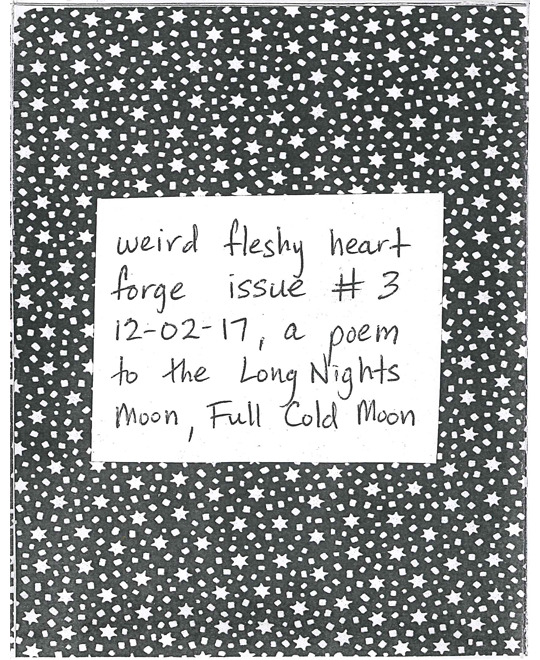 weird fleshy heart
forge issue # 3
12-02-17, a poem
to the Long Nights
Moon, Full Cold Moon